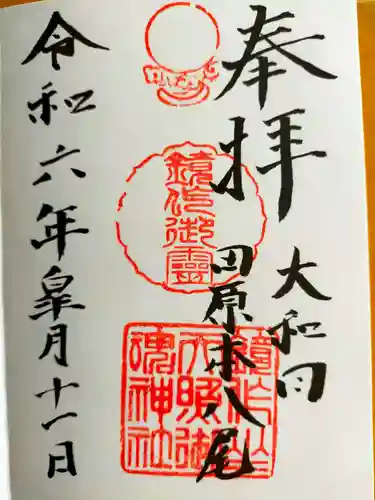 奉拝
大和国
田原本八尾
鏡作御霊
鏡作坐
天照御
魂神社
令和六年皐月十一日